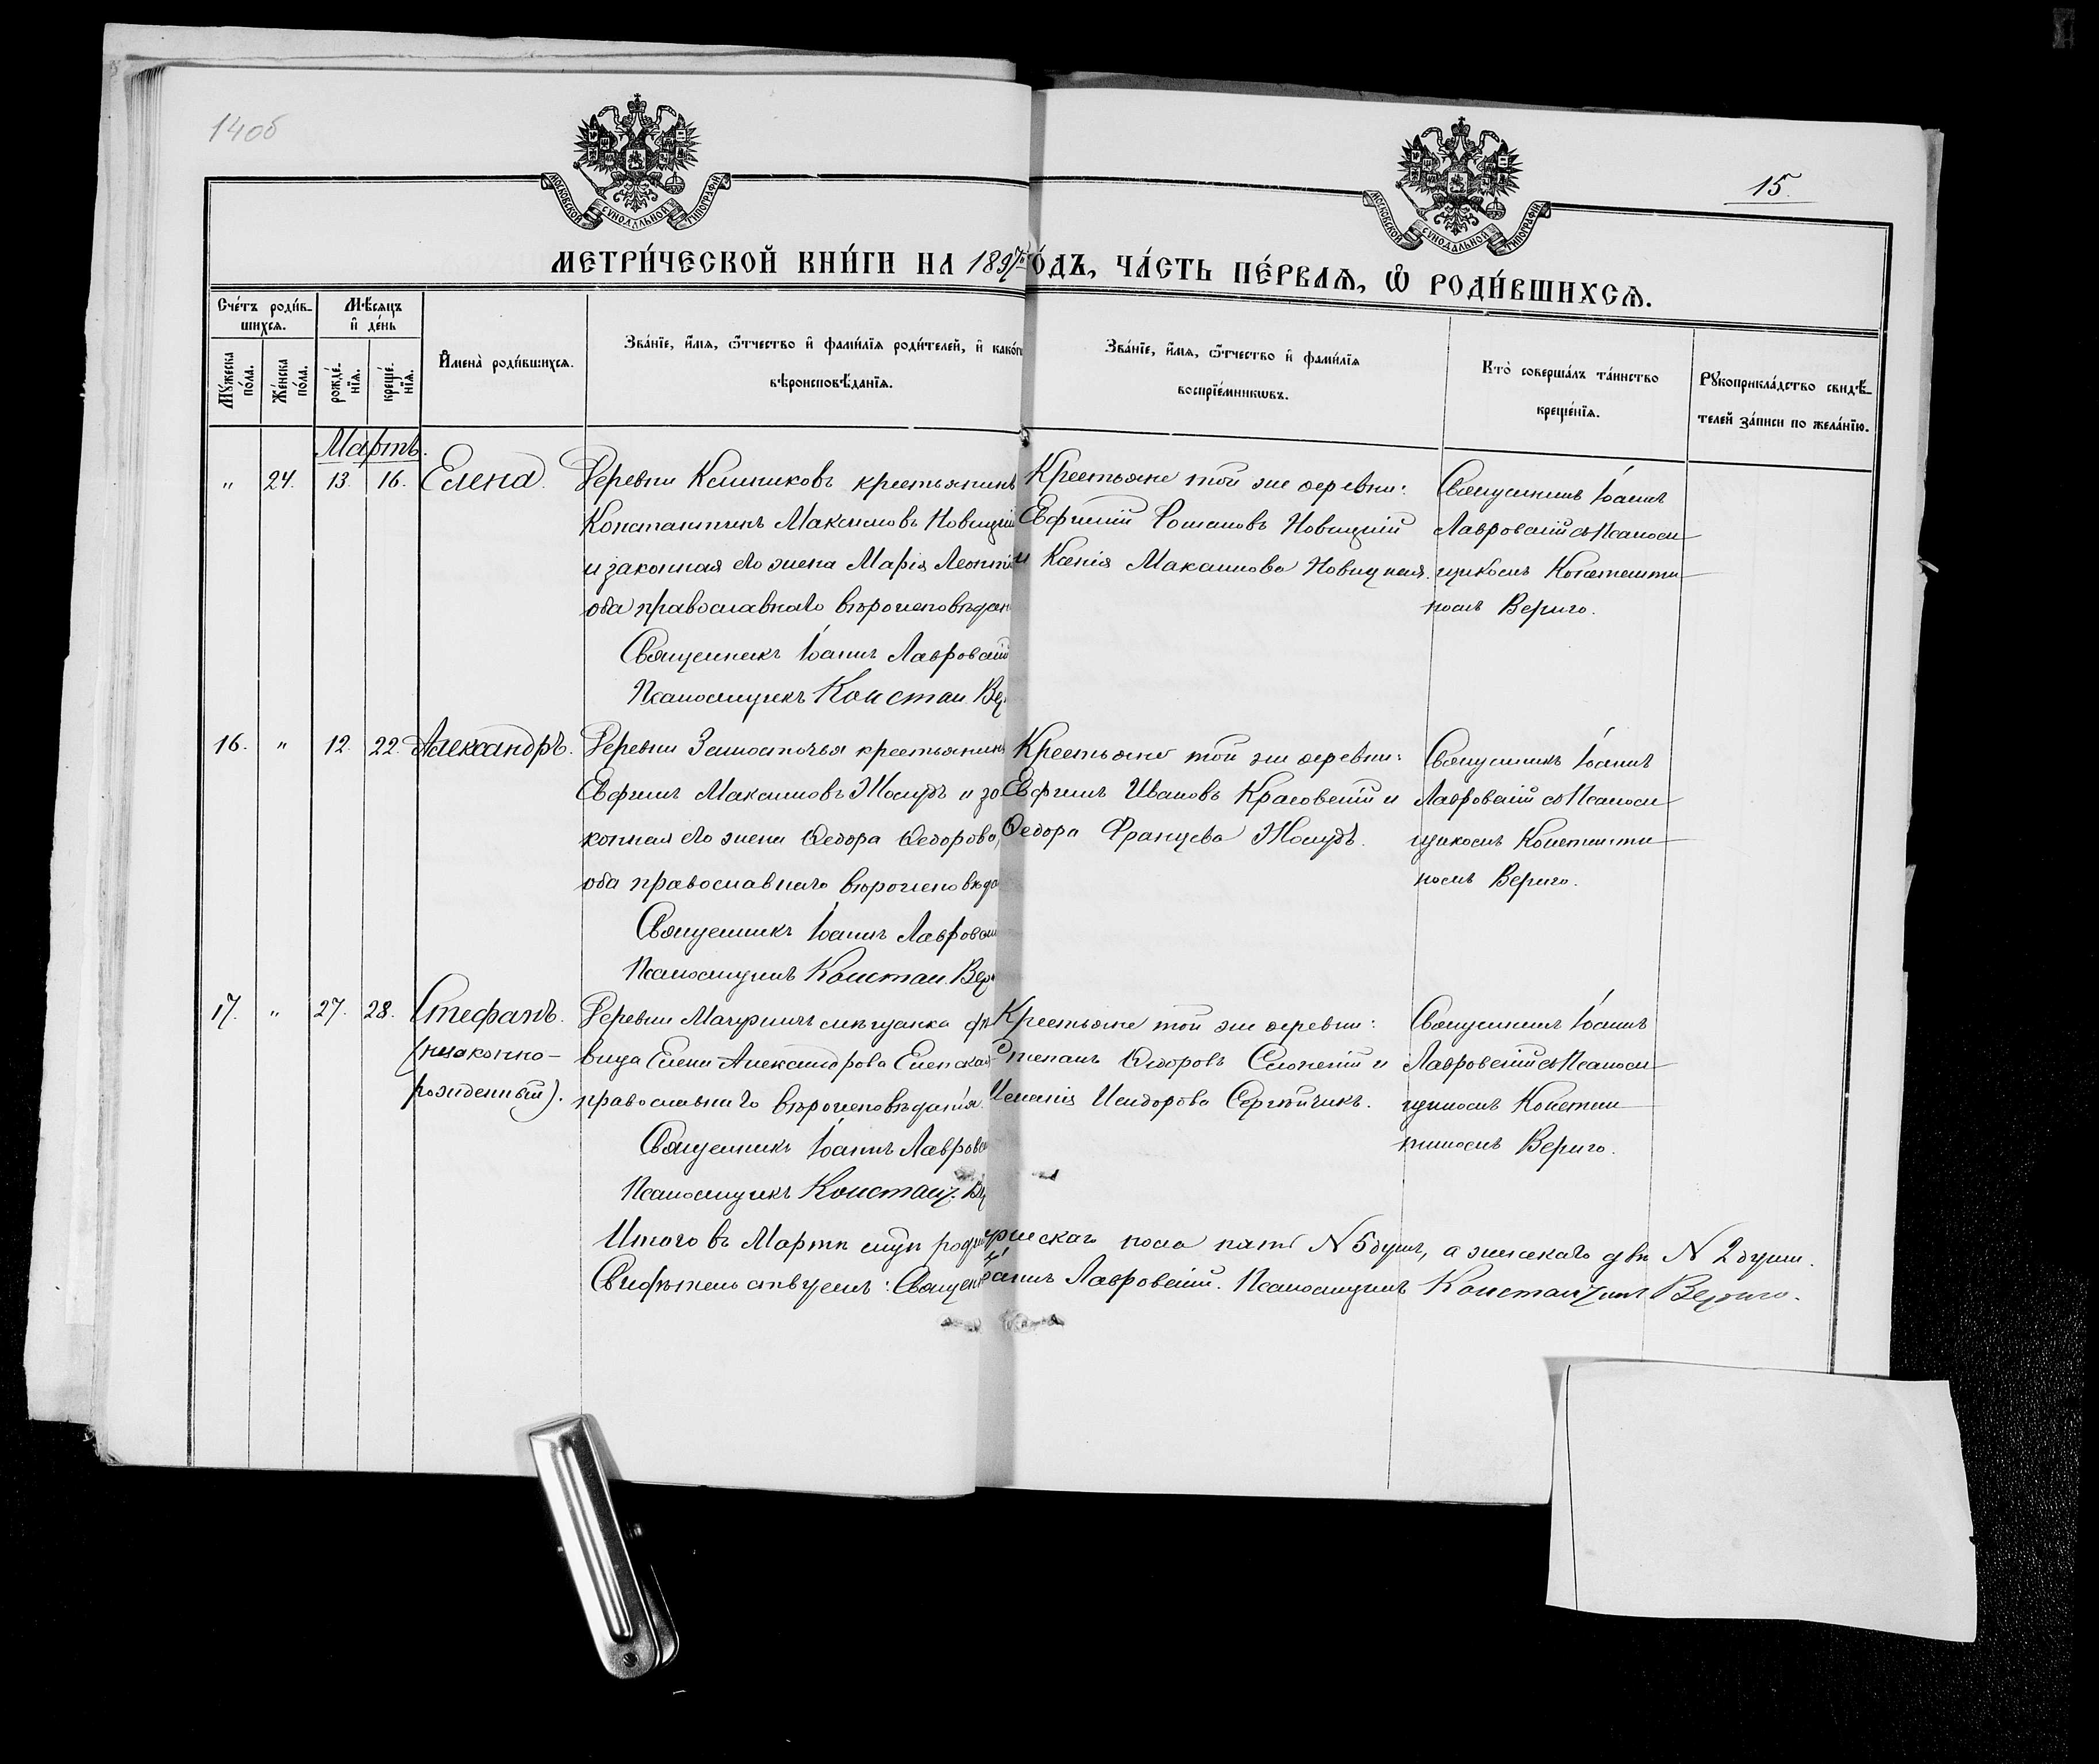 14об
15.
МОСКОВСКОЙ СУНОДАЛЬНОЙ ТИПОГРАФІИ
МОСКОВСКОЙ СУНОДАЛЬНОЙ ТИПОГРАФІИ
МЕТРИ́ЧЕСКОЙ КНИ́ГИ НА 1897й ГО́ДЪ, ЧА́СТЬ ПЕ́РВАѦ, Ѡ РОДИ́ВШИХСѦ.
Сче́тъ роди́в-
шихсѧ.
Мѣ́сѧцъ
и҆ де́нь
Мꙋ́жеска по́ла.
Же́нска по́ла.
рожде́нїѧ.
креще́нїѧ.
И҆мена̀ роди́вшихсѧ.
Зва́нїе, и҆́мѧ, ѻ҆́тчество и҆ фами́лїѧ роди́телей, и҆ како́гѡ
вѣроисповѣ́данїѧ.
Зва́нїе, и҆́мѧ, ѻ҆́тчество и҆ фами́лїѧ
воспрїе́мникѡвъ.
Кто̀ соверша́лъ та́инство
креще́нїѧ.
Рꙋкоприкла́дство свидѣ́-
телей за́писи по жела́нїю.
Мартъ.
" 24. 13. 16. Елена.
Деревни Климиковъ крестьянинъ
Константинъ Максимовъ Новицкій
и законная его жена Марія Леонтіе
оба православнаго вѣроисповѣдан
Священникъ Іоаннъ Лавровскій
Псаломщикъ Констан. Вер
Крестьяне той же деревни:
Евфимій Романовъ Новицкій
и Ксенія Максимова Новицкая.
Священникъ Іоаннъ
Лавровскій съ Псалом-
щикомъ Константи-
номъ Вериго.
16. " 12. 22. Александръ.
Деревни Замосточья крестьянинъ
Евфимъ Максимовъ Жолудь и за
конная его жена Ѳедора Ѳедорова,
оба православнаго вѣроисповѣда
Священникъ Іоаннъ Лавровскій
Псаломщикъ Констан. Вер
Крестьяне той же деревни:
Евфимъ Ивановъ Красовскій и
Ѳедора Францева Жолудь.
Священникъ Іоаннъ
Лавровскій съ Псалом-
щикомъ Константи-
номъ Вериго.
17. " 27. 28. Стефанъ.
(незаконно-
рожденный).
Деревни мѣщанка дѣ
вица Елена Александрова Еленская
православнаго вѣроисповѣданія.
Священникъ Іоаннъ Лавровс
Псаломщикъ Констант. В
Крестьяне той же деревни:
Степанъ Ѳедоровъ и
Исидорова Сергѣйчикъ.
Священникъ Іоаннъ
Лавровскій съ Псалом-
щикомъ Констан-
тиномъ Вериго.
Итого въ Мартѣ роди мужескаго пола пять N 5 душъ, а женскаго двѣ N 2 души.
Свидѣтельствуемъ: Священ Іоаннъ Лавровскій. Псаломщикъ Константинъ Вериго.